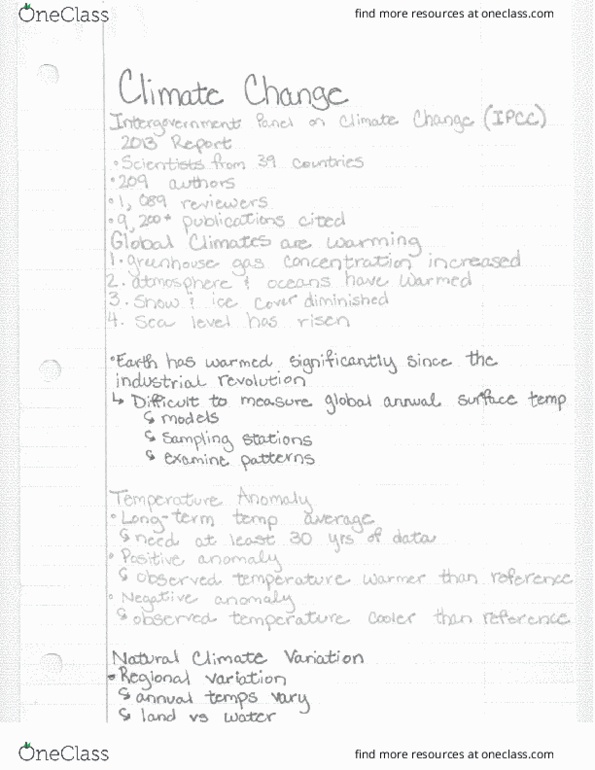 OneClass
find more resources at oneclass.com
Climate Change
Intergovernments Panel on Climate Change (IPCC)
2013 Report
• Scientists from 39 countries
• 209 authors
• 1,089 reviewers
• 9,200+ publications cited
Global Climates are warming
1. greenhouse gas concentration increased
2. atmosphere & oceans have warmed
3. Snow & ice cover diminished
4. Sea level has risen
• Earth has warmed significantly since the
industrial revolution
↳ Difficult to measure global annual surface temp
↳ models
↳ sampling stations
↳ examine patterns
Temperature Anomaly
• Long-term temp average
↳ need at least 30 yrs of data
• Positive anomaly
↳ observed temperature warmer than reference
• Negative anomaly
↳ observed temperature cooler than reference
Natural Climate Variation
• Regional variation
↳ annual temps vary
↳ land vs water
OneClass
find more resources at oneclass.com